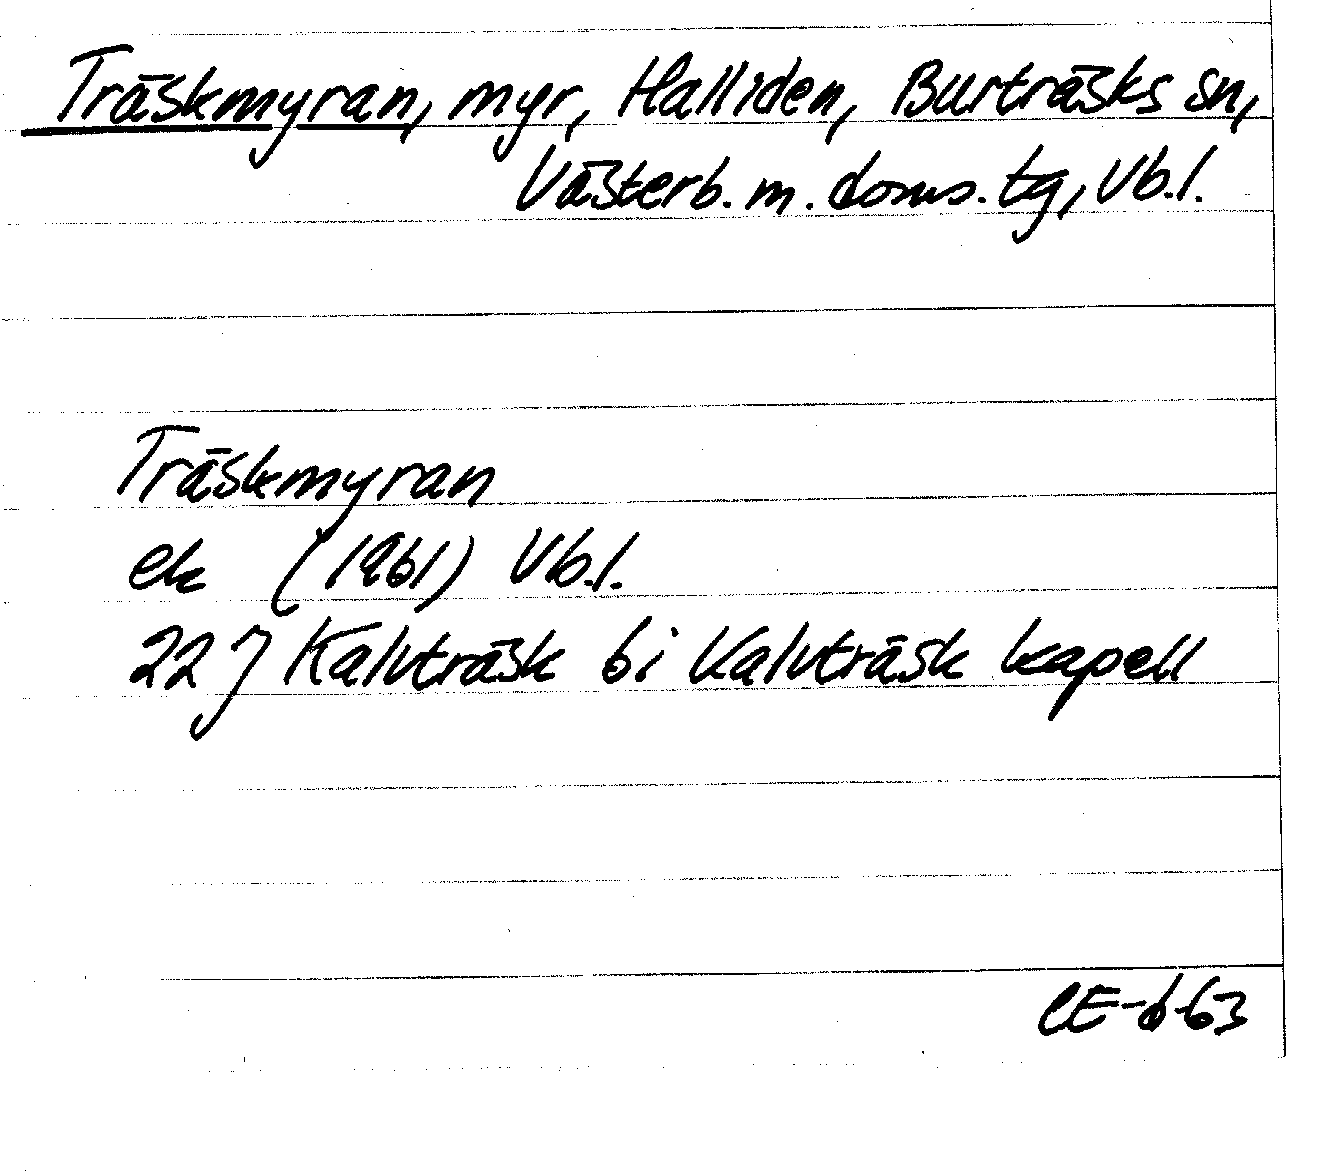 Träskmyran, myr, Halliden, Burträsks sn,
Västerb. m. doms. tg, Vb.l.
Träskmyran
ek (1961) Vb.l.
22 J Kalvträsk bi Kalvträsk kapell
CE-d-63